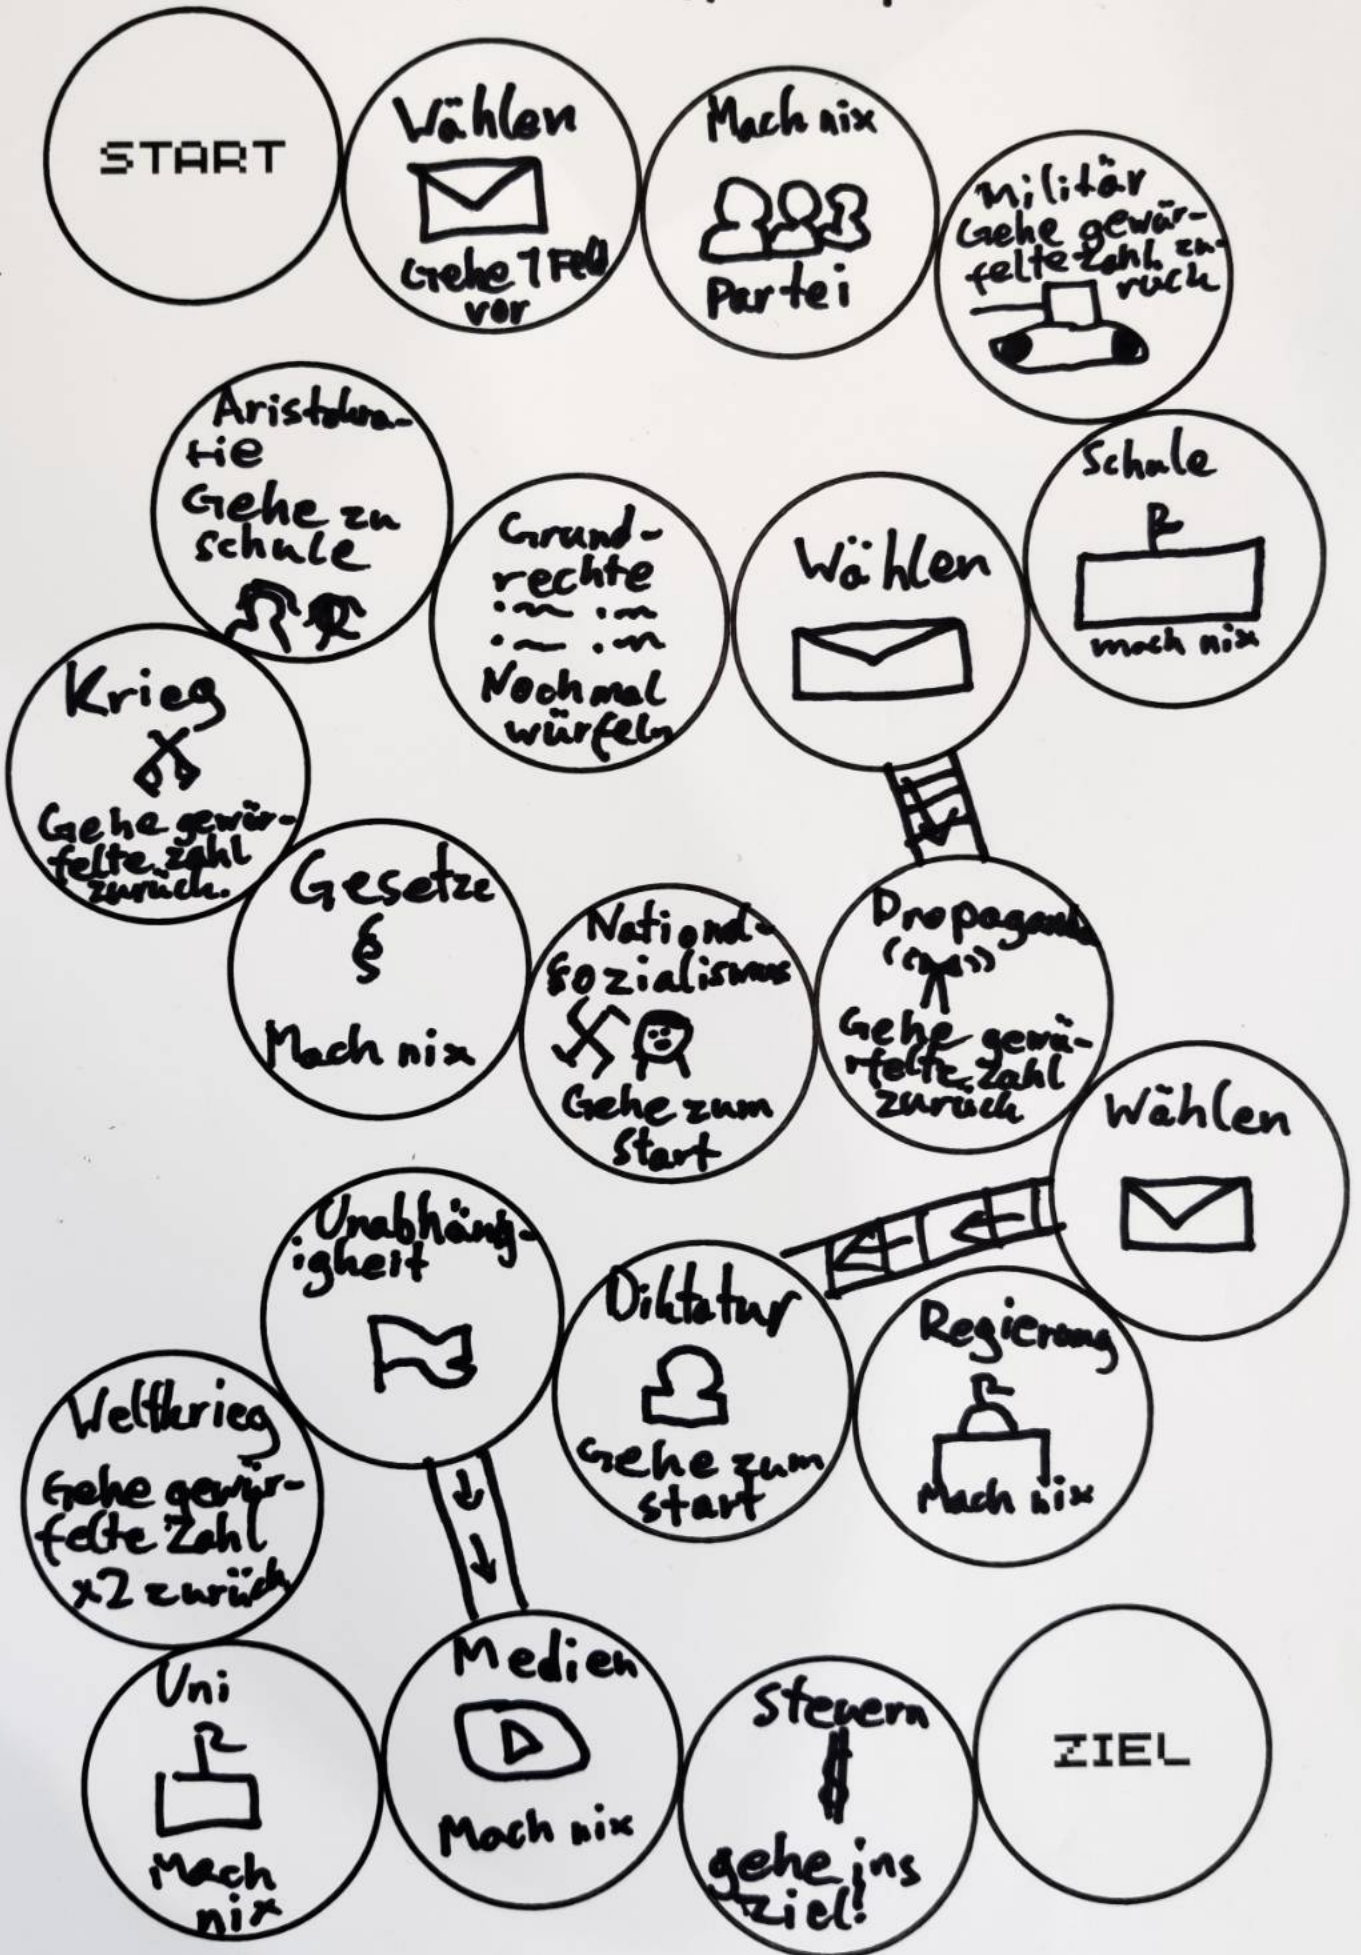 START
Wählen
Gehe 1 Feld
vor
Mach nix
Partei
Militär
Gehe gewür-
felte Zahl zu-
rück
Schule
mach nix
Wählen
Grund-
rechte
Nochmal
würfeln
Aristokra-
tie
Gehe zu
schule
Krieg
Gehe gewür-
felte Zahl
zurück.
Gesetze
§
Mach nix
National-
sozialismus
Gehe zum
Start
Propaganda
Gehe gewü-
rfelte Zahl
zurück
Wählen
Regierung
Mach nix
Diktatur
Gehe zum
start
Unabhäng-
igkeit
Weltkrieg
Gehe gewür-
felte Zahl
x2 zurück
Uni
Mach
nix
Medien
Mach nix
Steuern
gehe ins
Ziel!
ZIEL